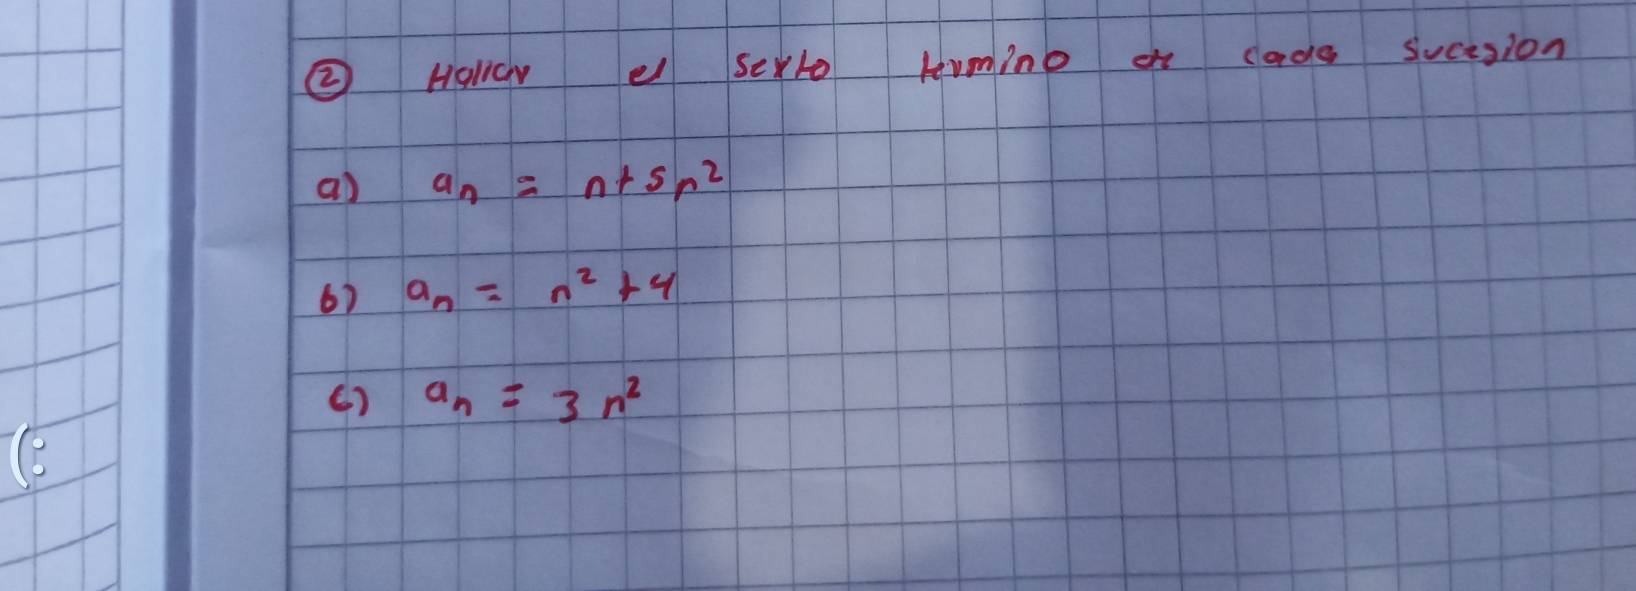 ② Hallar el sexto termino de cada sucesion
a) aₙ = n+5n²
b) aₙ = n²+4
c) aₙ = 3n²
(: